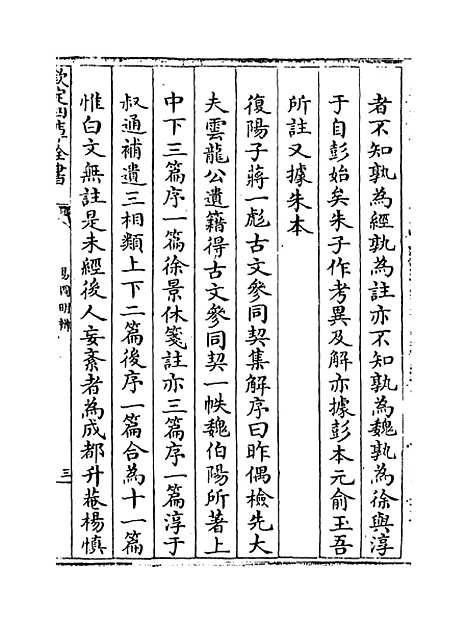 者不知孰為經孰為註亦不知孰為魏孰為徐與淳
于自彭始矣朱子作考異及解亦據彭本元俞玉吾
所註又據朱本
復陽子蔣一彪古文參同契集解序曰昨偶檢先大
夫雲龍公遺籍得古文參同契一帙魏伯陽所著上
中下三篇序一篇徐景休箋註亦三篇序一篇淳于
叔通補遺三相類上下二篇後序一篇合為十一篇
惟白文無註是未經後人妄紊者為成都升菴楊慎
欽定四庫全書
易圖明辨
三